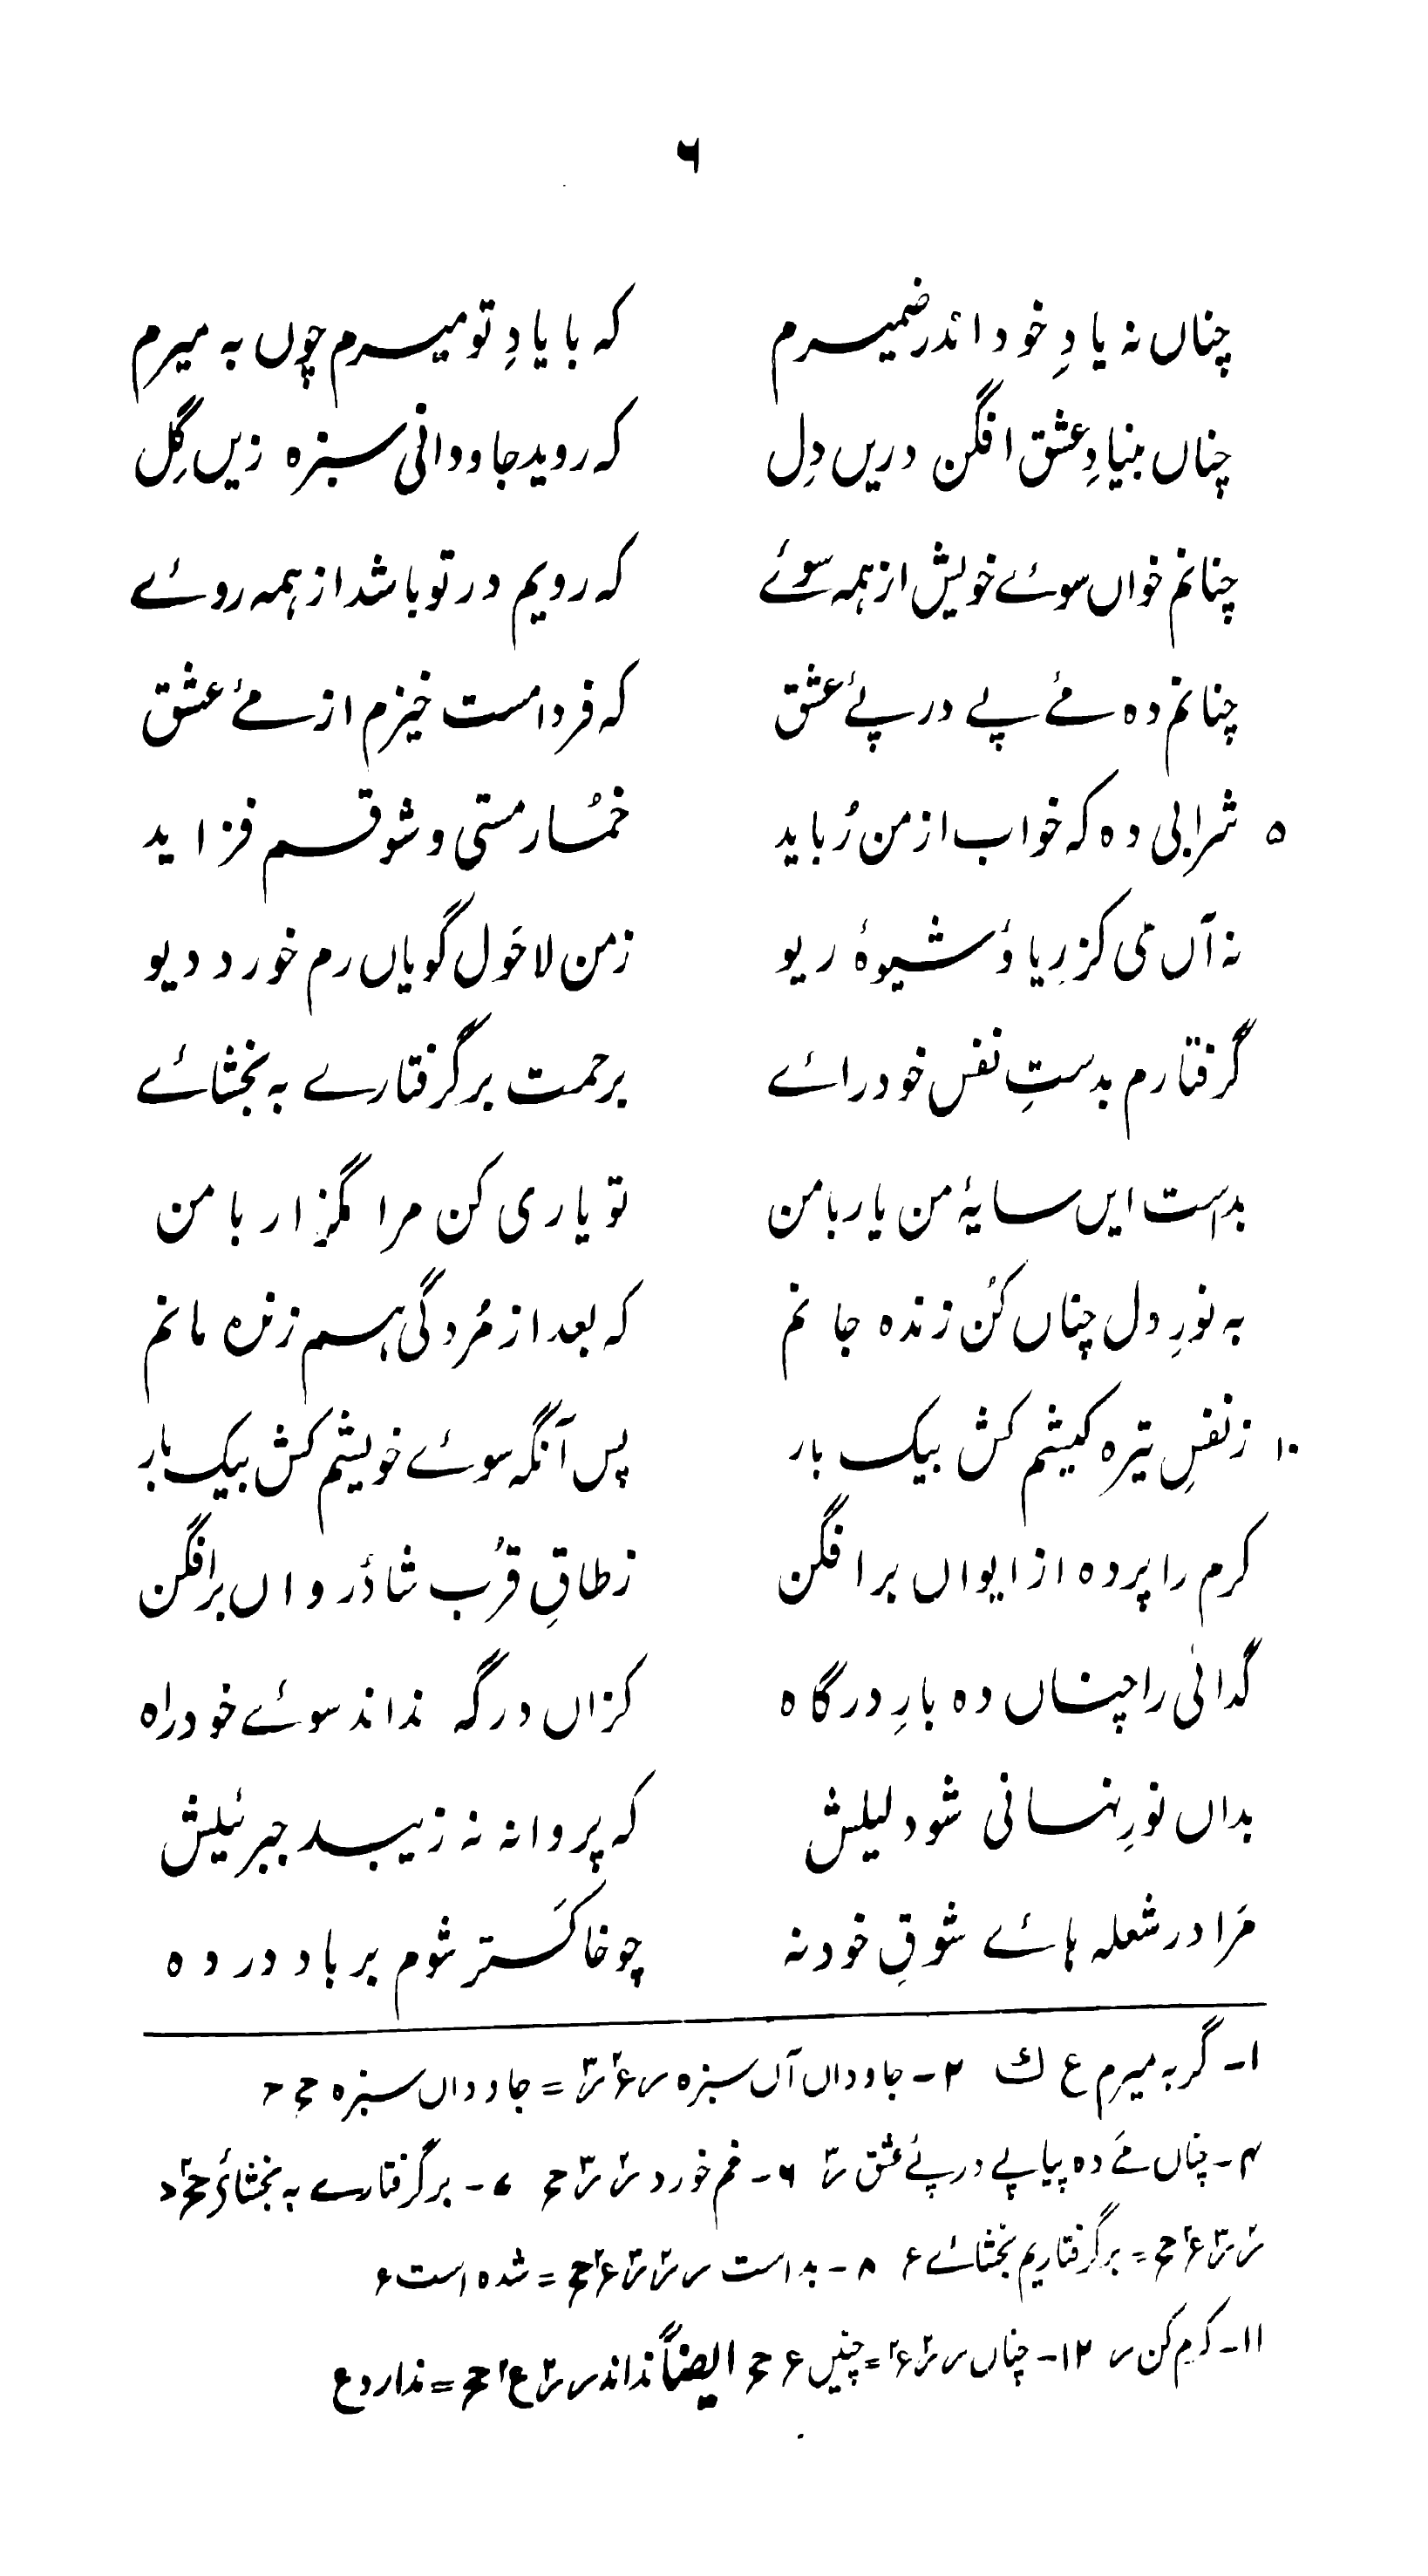 ۶
چناں نہ یادِ خود اندر ضمیرم کہ با یادِ تو میرم چوں بہ میرم
چناں بنیادِ عشق افگن دریں دِل کہ روید جاودانی سبزہ زیں گِل
چنانم خواں سوئے خویش از ہمہ سوئے کہ رویم در تو باشد از ہمہ روئے
چنانم دہ مئے پے در پئے عشق کہ فردا مست خیزم از مئے عشق
۵ شرابی دہ کہ خواب از من رُباید خمُار مستی و شوقم فزاید
نہ آں می کز رِیا وُ شیوۂ ریو زمن لاحَول گویاں رم خورد دیو
گرفتارم بدستِ نفس خود رائے برحمت بر گرفتارے بہ بخشائے
بداست ایں سایۂ من یار با من تو یاری کن مرا مگزار با من
بہ نورِ دل چناں کُن زندہ جانم کہ بعد از مُردگی ہم زندہ مانم
۱۰ ز نفسِ تیرہ کیشم کش بیک بار پس آنگہ سوئے خویشم کش بیک بار
کرم را پردہ از ایواں بر افگن ز طاقِ قرُب شادُرواں بر افگن
گدائی را چناں دہ بارِ درگاہ کزاں درگہ نداند سوئے خود راہ
بداں نورِ نہانی شو دلیلش کہ پروانہ نہ زیبد جبرئیلش
مَرا در شعلہ ہائے شوقِ خود نہ چو خاکَستر شوم بر باد در دہ
۱- گر بہ میرم ع ک ۲- جاوداں آں سبزہ = جاوداں سبزہ
۴- چناں مَے دہ پیاپے در پئے عشق ۶- غم خورد ۷- بر گرفتارے بہ بخشائے
= بر گرفتاریم بخشائے ۸- بد است = شدہ است
۱۱- کرم کن ۱۲- چناں = چنیں ایضاً نداند = ندارد ع